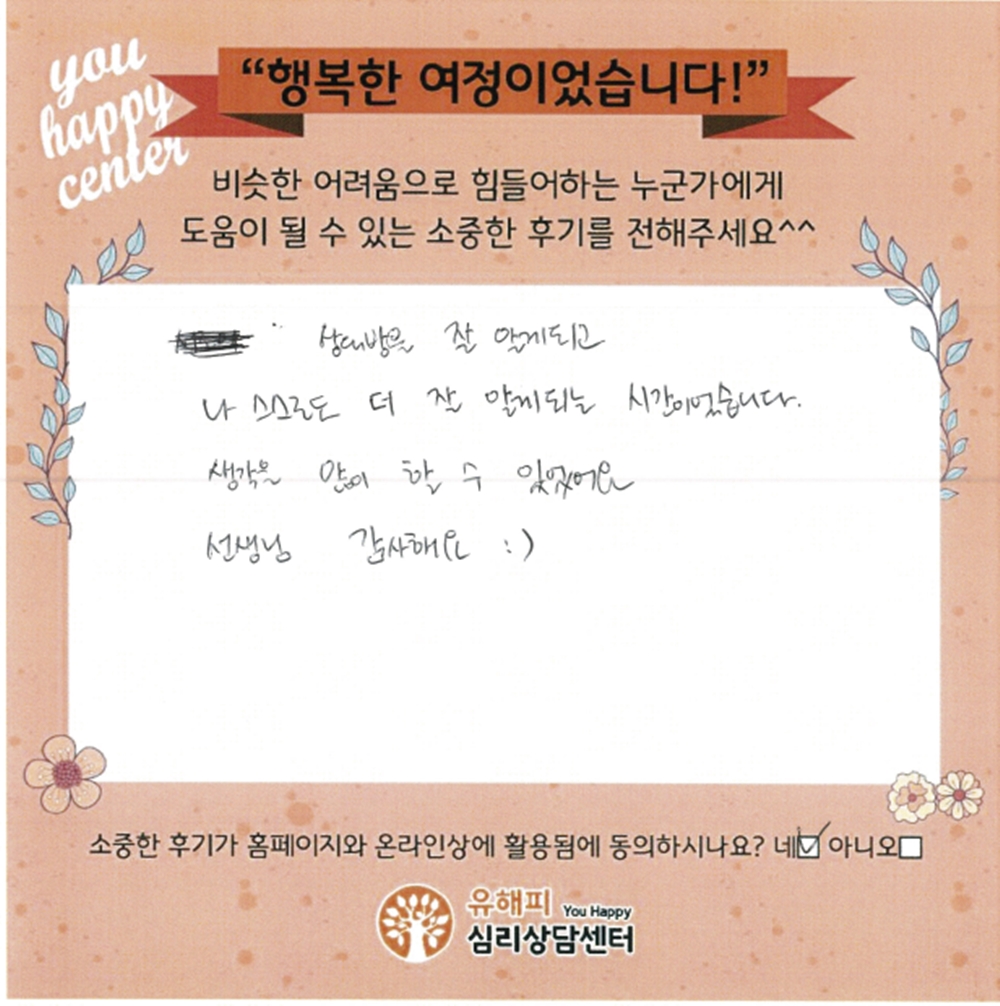 you
happy
center
“행복한 여정이었습니다!”
비슷한 어려움으로 힘들어하는 누군가에게
도움이 될 수 있는 소중한 후기를 전해주세요^^
상대방을 잘 알게되고
나 스스로도 더 잘 알게되는 시간이었습니다.
생각을 많이 할 수 있었어요
선생님 감사해요 :)
소중한 후기가 홈페이지와 온라인상에 활용됨에 동의하시나요? 네☑ 아니오☐
유해피 You Happy
심리상담센터